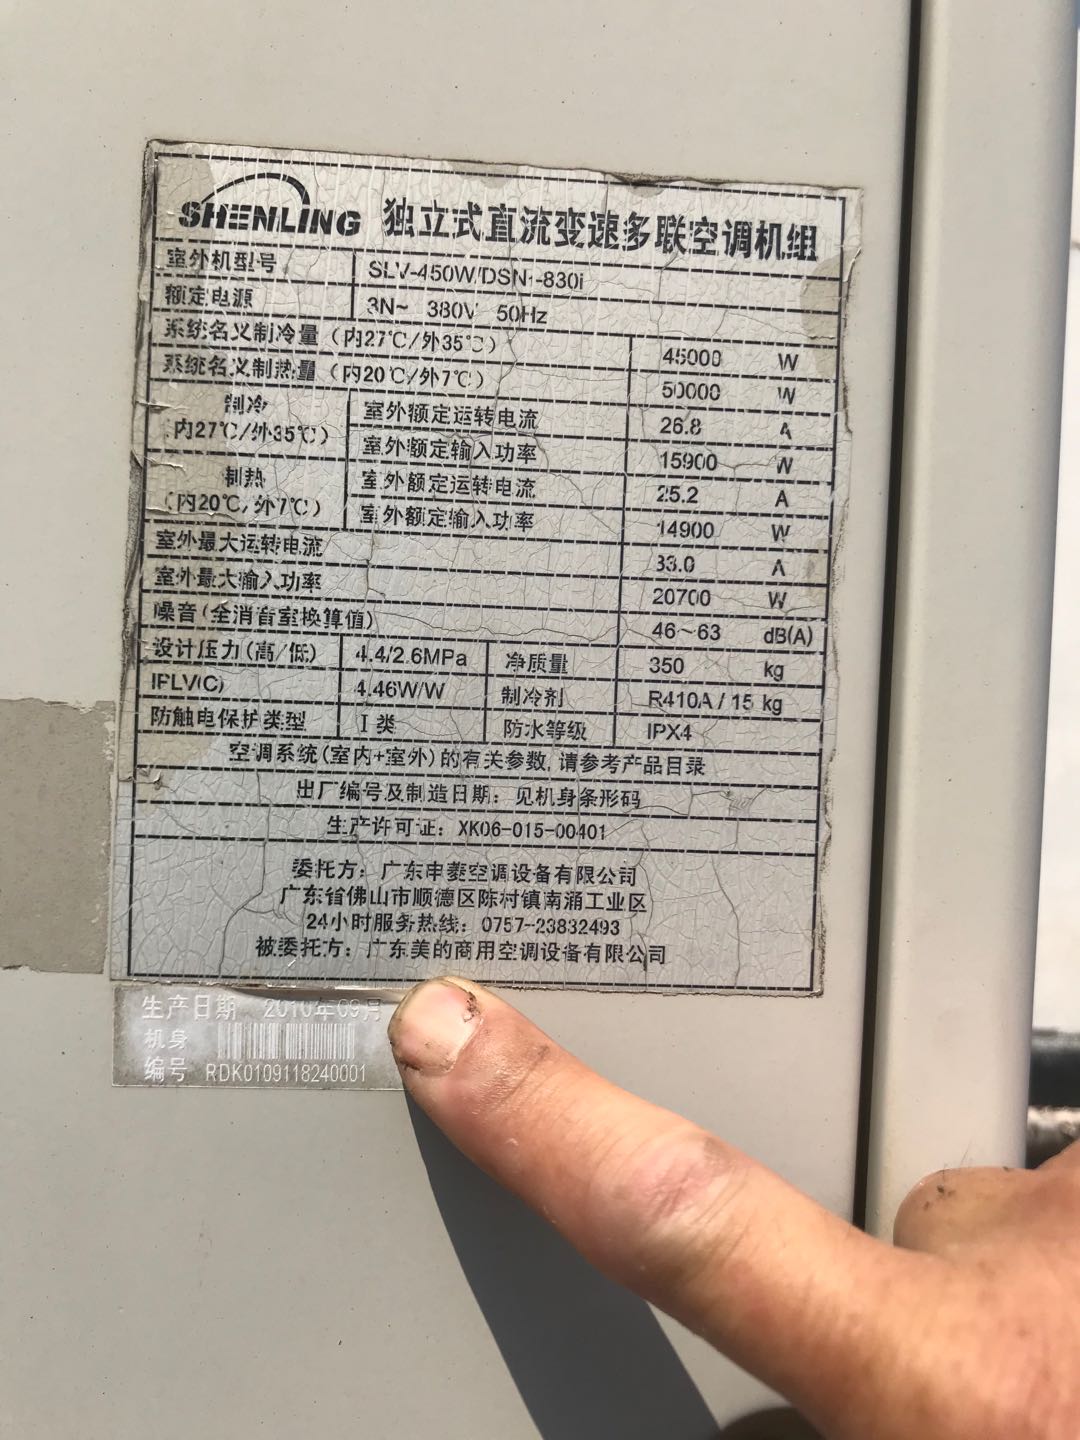 SHENLING 独立式直流变速多联空调机组
室外机型号 SLV-450W/DSN1-830i
额定电源 3N~ 380V 50Hz
系统名义制冷量（内27℃/外35℃） 45000 W
系统名义制热量（内20℃/外7℃） 50000 W
制冷（内27℃/外35℃） 室外额定运转电流 26.8 A
室外额定输入功率 15900 W
制热（内20℃/外7℃） 室外额定运转电流 25.2 A
室外额定输入功率 14900 W
室外最大运转电流 33.0 A
室外最大输入功率 20700 W
噪音(全消音室换算值) 46~63 dB(A)
设计压力(高/低) 4.4/2.6MPa 净质量 350 kg
IPLV(C) 4.46W/W 制冷剂 R410A / 15 kg
防触电保护类型 I 类 防水等级 IPX4
空调系统(室内+室外)的有关参数,请参考产品目录
出厂编号及制造日期：见机身条形码
生产许可证：XK06-015-00401
委托方：广东申菱空调设备有限公司
广东省佛山市顺德区陈村镇南涌工业区
24小时服务热线：0757-23832493
被委托方：广东美的商用空调设备有限公司
生产日期 2010年09月
机身
编号 RDK0109118240001